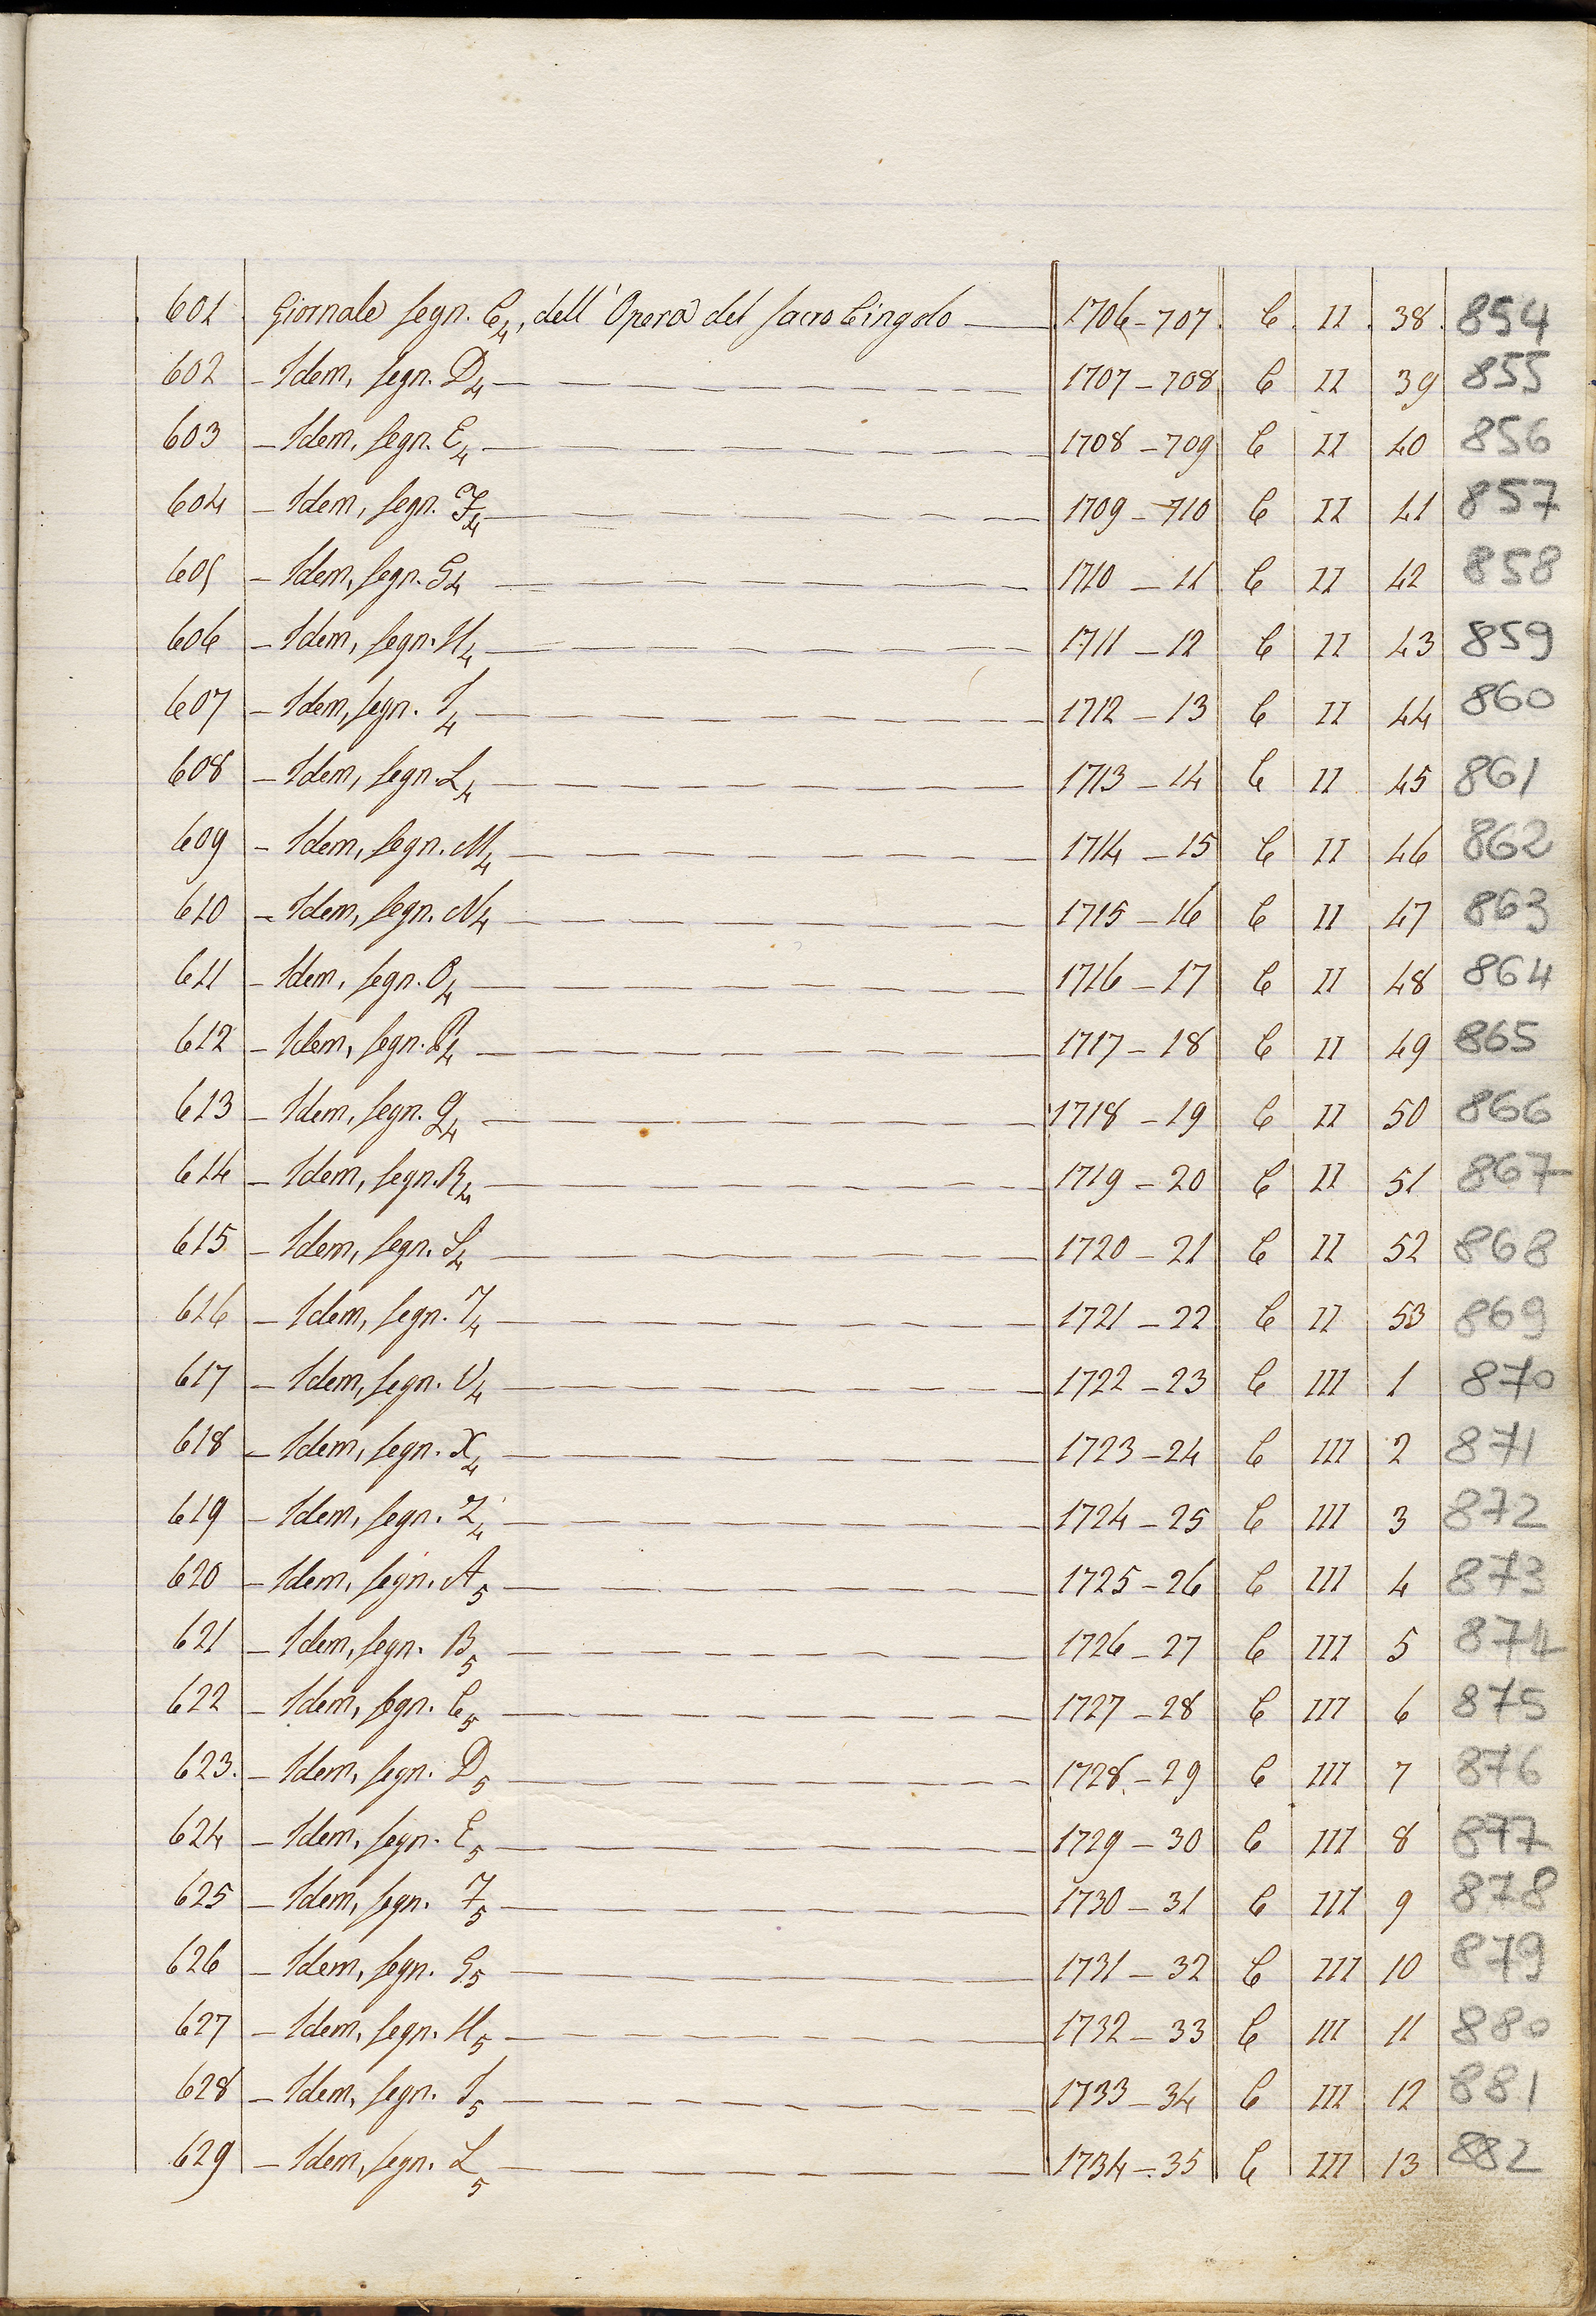 601 Giornale segn. C4, dell'Opera del Sacro Cingolo — 1706-707. C. II. 38. 854
602 — Idem, segn. D4 — 1707-708 C II 39 855
603 — Idem, segn. E4 — 1708-709 C II 40 856
604 — Idem, segn. F4 — 1709-710 C II 41 857
605 — Idem, segn. G4 — 1710-11 C II 42 858
606 — Idem, segn. H4 — 1711-12 C II 43 859
607 — Idem, segn. I4 — 1712-13 C II 44 860
608 — Idem, segn. L4 — 1713-14 C II 45 861
609 — Idem, segn. M4 — 1714-15 C II 46 862
610 — Idem, segn. N4 — 1715-16 C II 47 863
611 — Idem, segn. O4 — 1716-17 C II 48 864
612 — Idem, segn. P4 — 1717-18 C II 49 865
613 — Idem, segn. Q4 — 1718-19 C II 50 866
614 — Idem, segn. R4 — 1719-20 C II 51 867
615 — Idem, segn. S4 — 1720-21 C II 52 868
616 — Idem, segn. T4 — 1721-22 C II 53 869
617 — Idem, segn. V4 — 1722-23 C III 1 870
618 — Idem, segn. X4 — 1723-24 C III 2 871
619 — Idem, segn. Z4 — 1724-25 C III 3 872
620 — Idem, segn. A5 — 1725-26 C III 4 873
621 — Idem, segn. B5 — 1726-27 C III 5 874
622 — Idem, segn. C5 — 1727-28 C III 6 875
623. — Idem, segn. D5 — 1728-29 C III 7 876
624 — Idem, segn. E5 — 1729-30 C III 8 877
625 — Idem, segn. F5 — 1730-31 C III 9 878
626 — Idem, segn. G5 — 1731-32 C III 10 879
627 — Idem, segn. H5 — 1732-33 C III 11 880
628 — Idem, segn. I5 — 1733-34 C III 12 881
629 — Idem, segn. L5 — 1734-35 C III 13 882